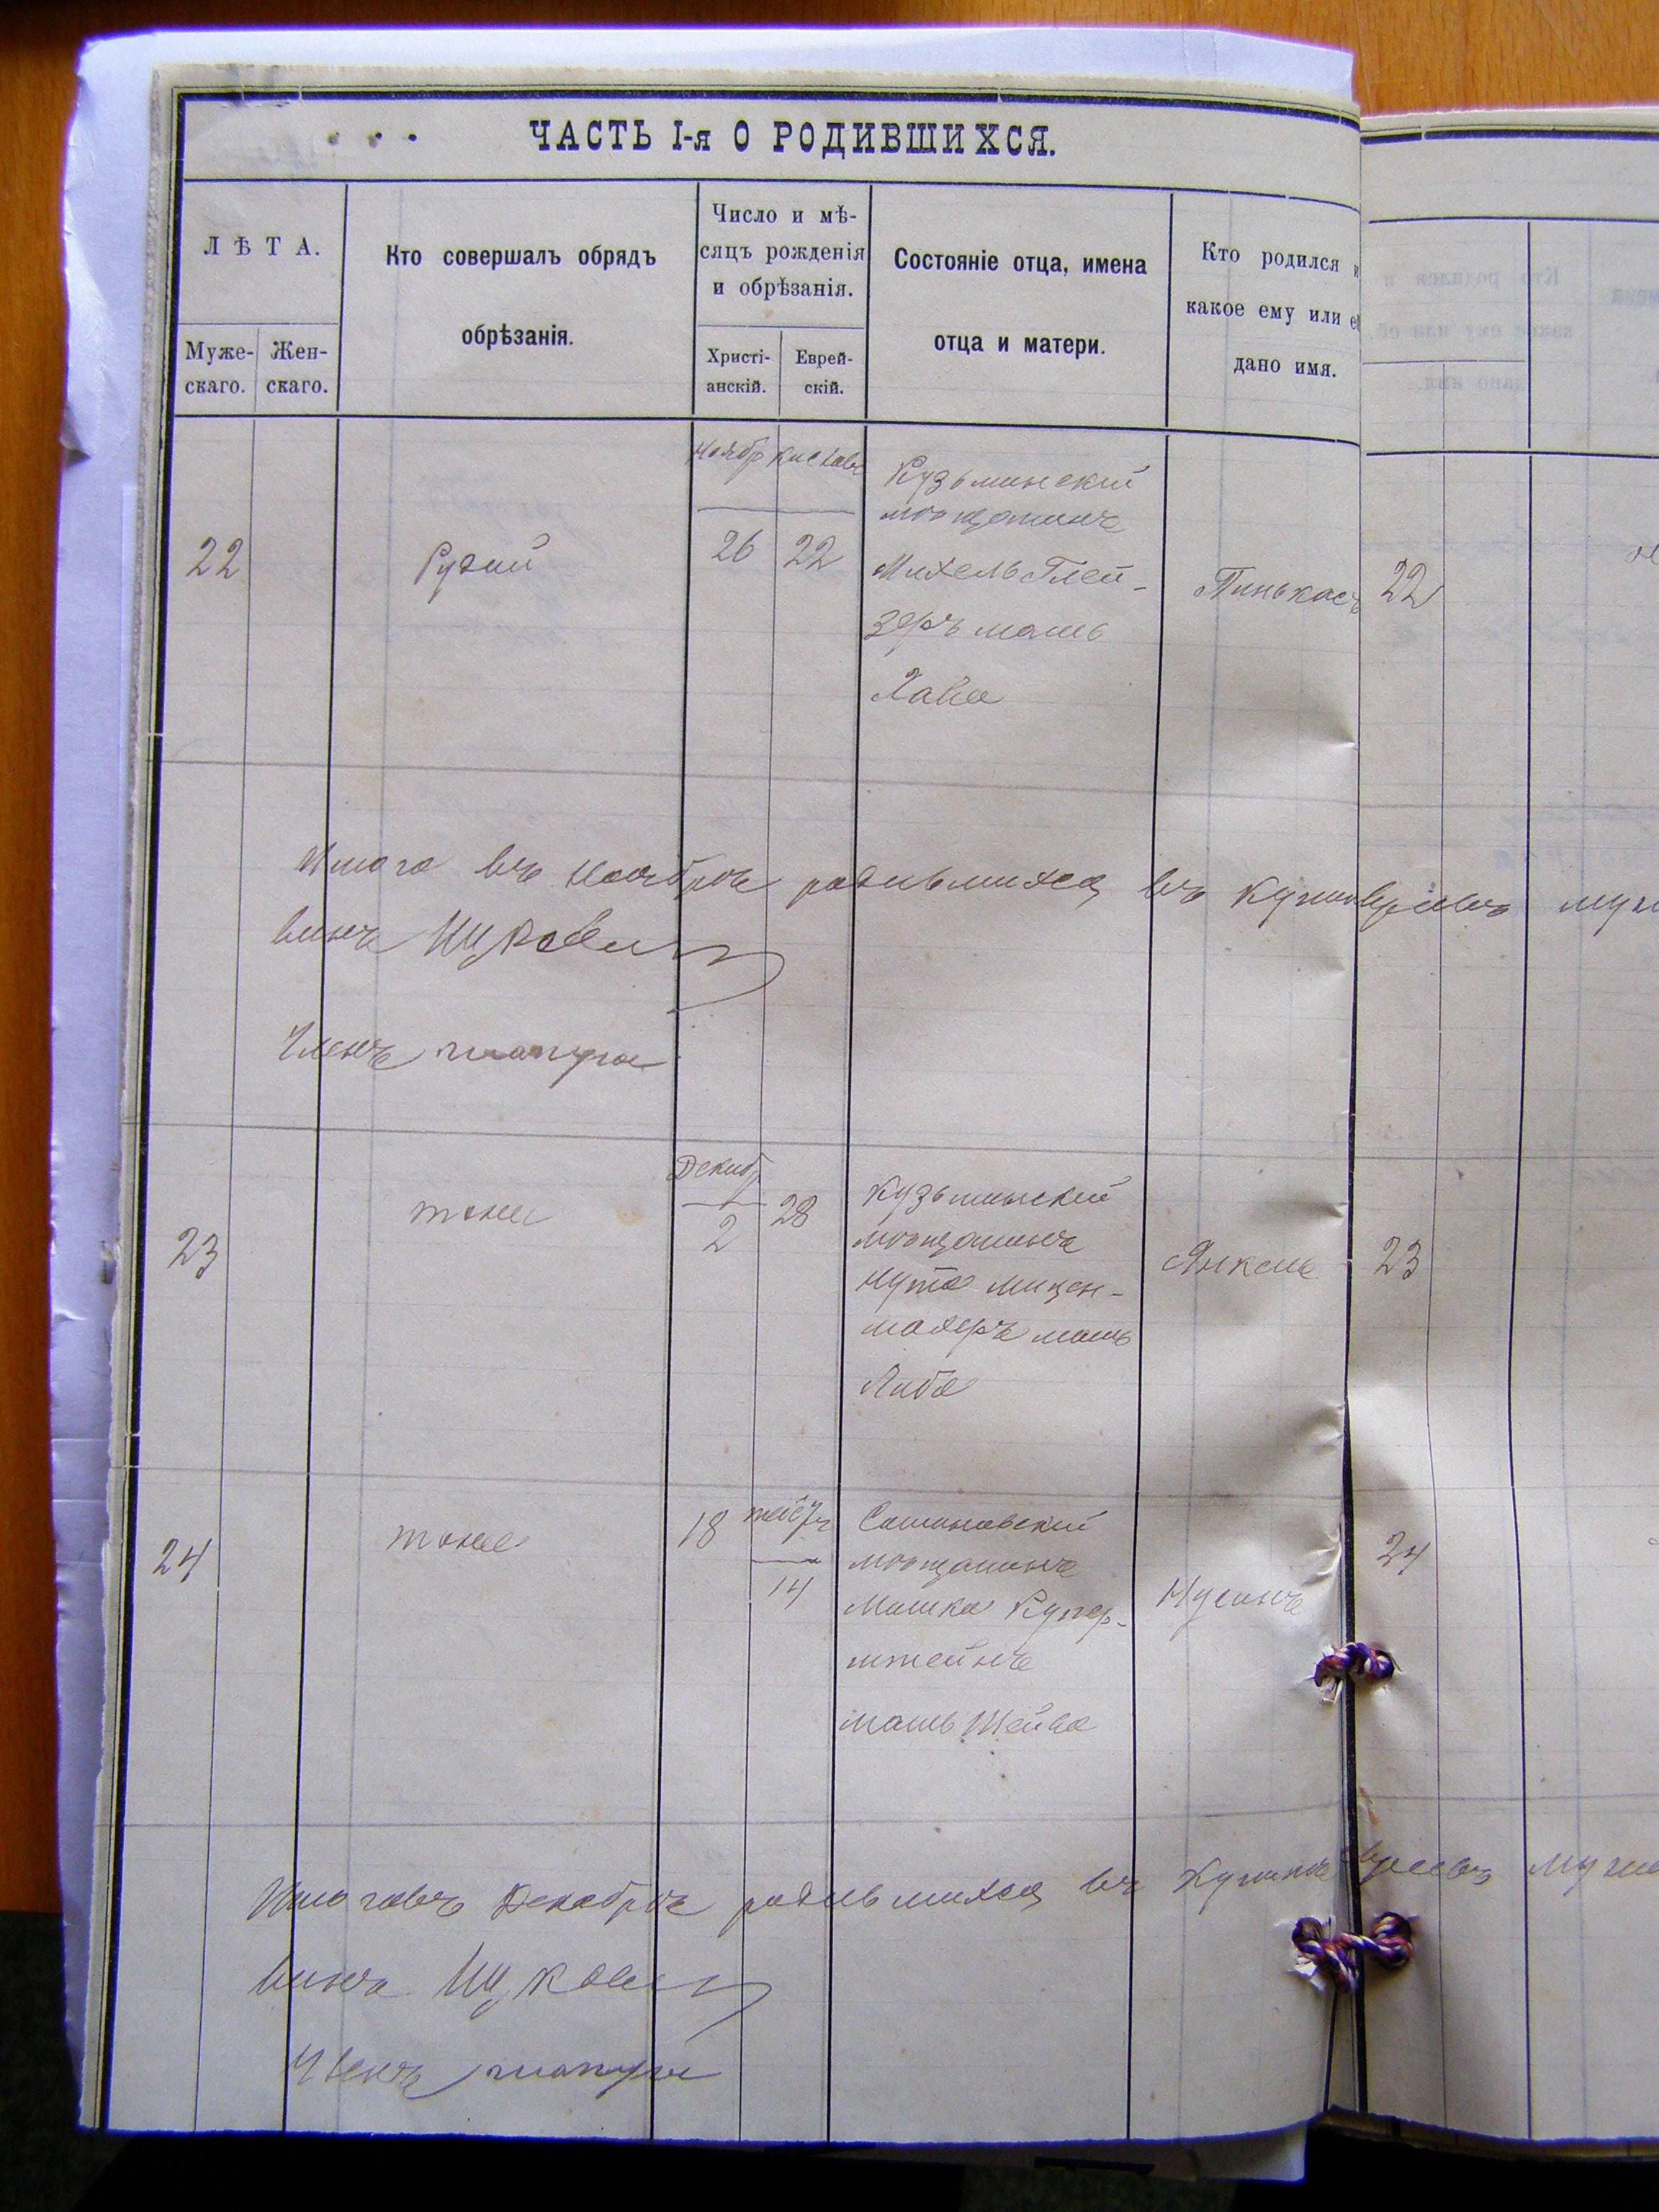 ЧАСТЬ I-я О РОДИВШИХСЯ.
ЛѢТА.
Муже-
скаго.
Жен-
скаго.
Кто совершалъ обрядъ
обрѣзанія.
Число и мѣ-
сяцъ рожденія
и обрѣзанія.
Христі-
анскій.
Еврей-
скій.
Состояніе отца, имена
отца и матери.
Кто родился и
какое ему или ей
дано имя.
22
Рудый
Ноябр
26
Кислевъ
22
Кузьминскій
мѣщанинъ
Михель Глей-
зеръ мать
Хава
Пинькасъ
22
Итого въ Ноябрѣ родившихся въ
Членъ
23
тоже
Декабр
2
28
Кузьминскій
мѣщанинъ
Нута Мицен-
махеръ мать
Либа
Янкель
23
24
тоже
18
тейвъ
14
Сатановский
мѣщанинъ
Мошка Купер-
штейнъ
мать Шейва
Нусинъ
24
Итого въ Декабрѣ родившихся въ
Членъ